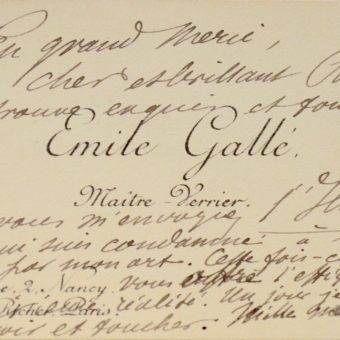 Un grand merci,
cher et brillant
trouve exquis et
Emile Gallé.
Maître-Verrier.
vous m'envoyez l'
qui suis condamné à
par mon art. Cette fois-c
e, 2, Nancy vous l'
Richer, Paris réalité. Un jour je
oir et toucher. Mille